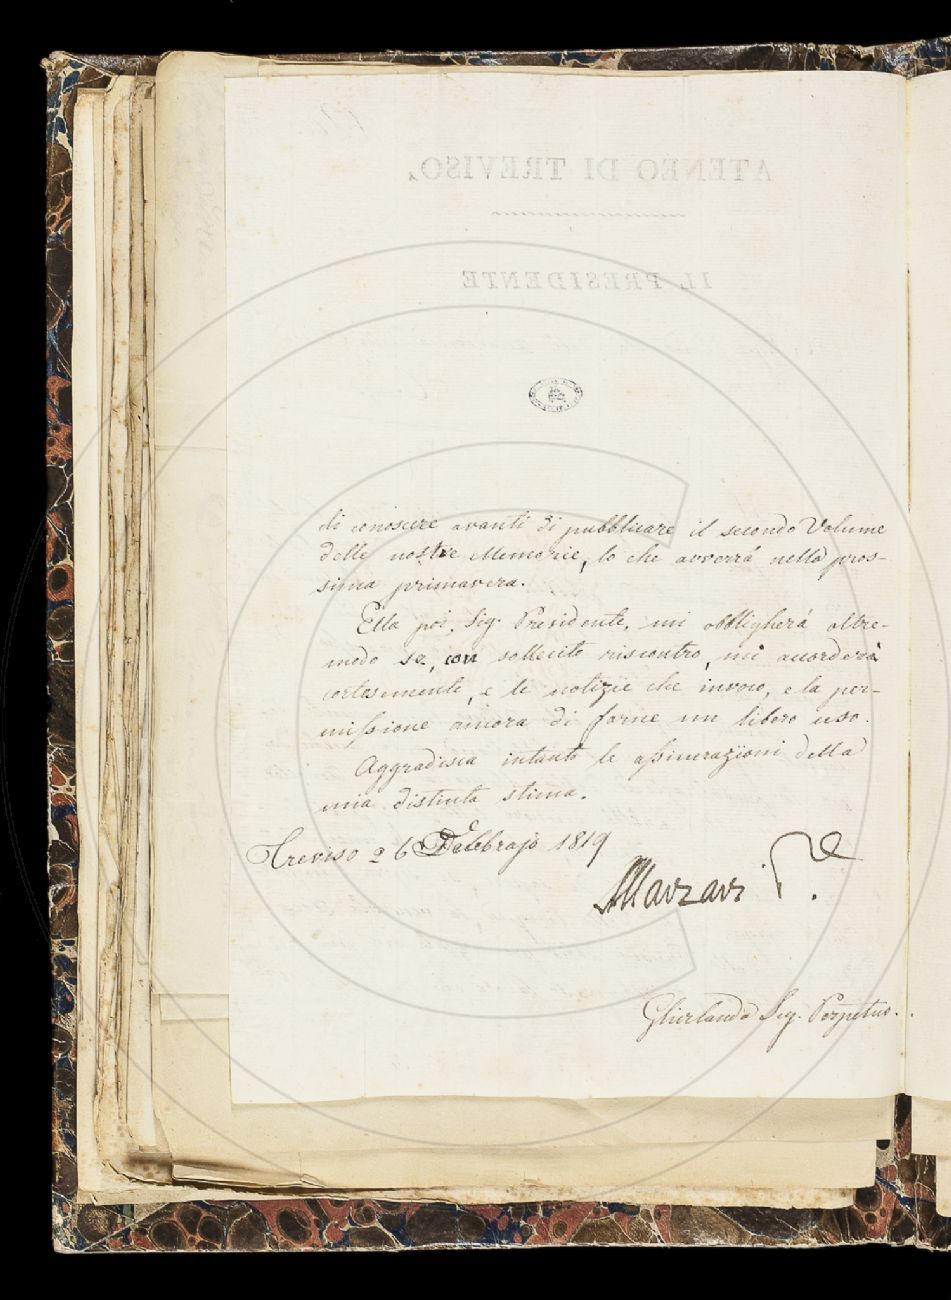 ATENEO DI TREVISO,
IL PRESIDENTE
di conoscere avanti di pubblicare il secondo Volume
delle nostre Memorie, lo che avverrà nella pros-
sima primavera.
Ella poi, Sig. Presidente, mi obbligherà oltre-
modo se, con sollecito riscontro, mi accorderà
cortesemente, e le notizie che invoco, e la per-
missione ancora di farne un libero uso.
Aggradisca intanto le assicurazioni della
mia distinta stima.
Treviso 26 Febbrajo 1819
Marzari P.e
Ghirlanda Seg. Perpetuo.